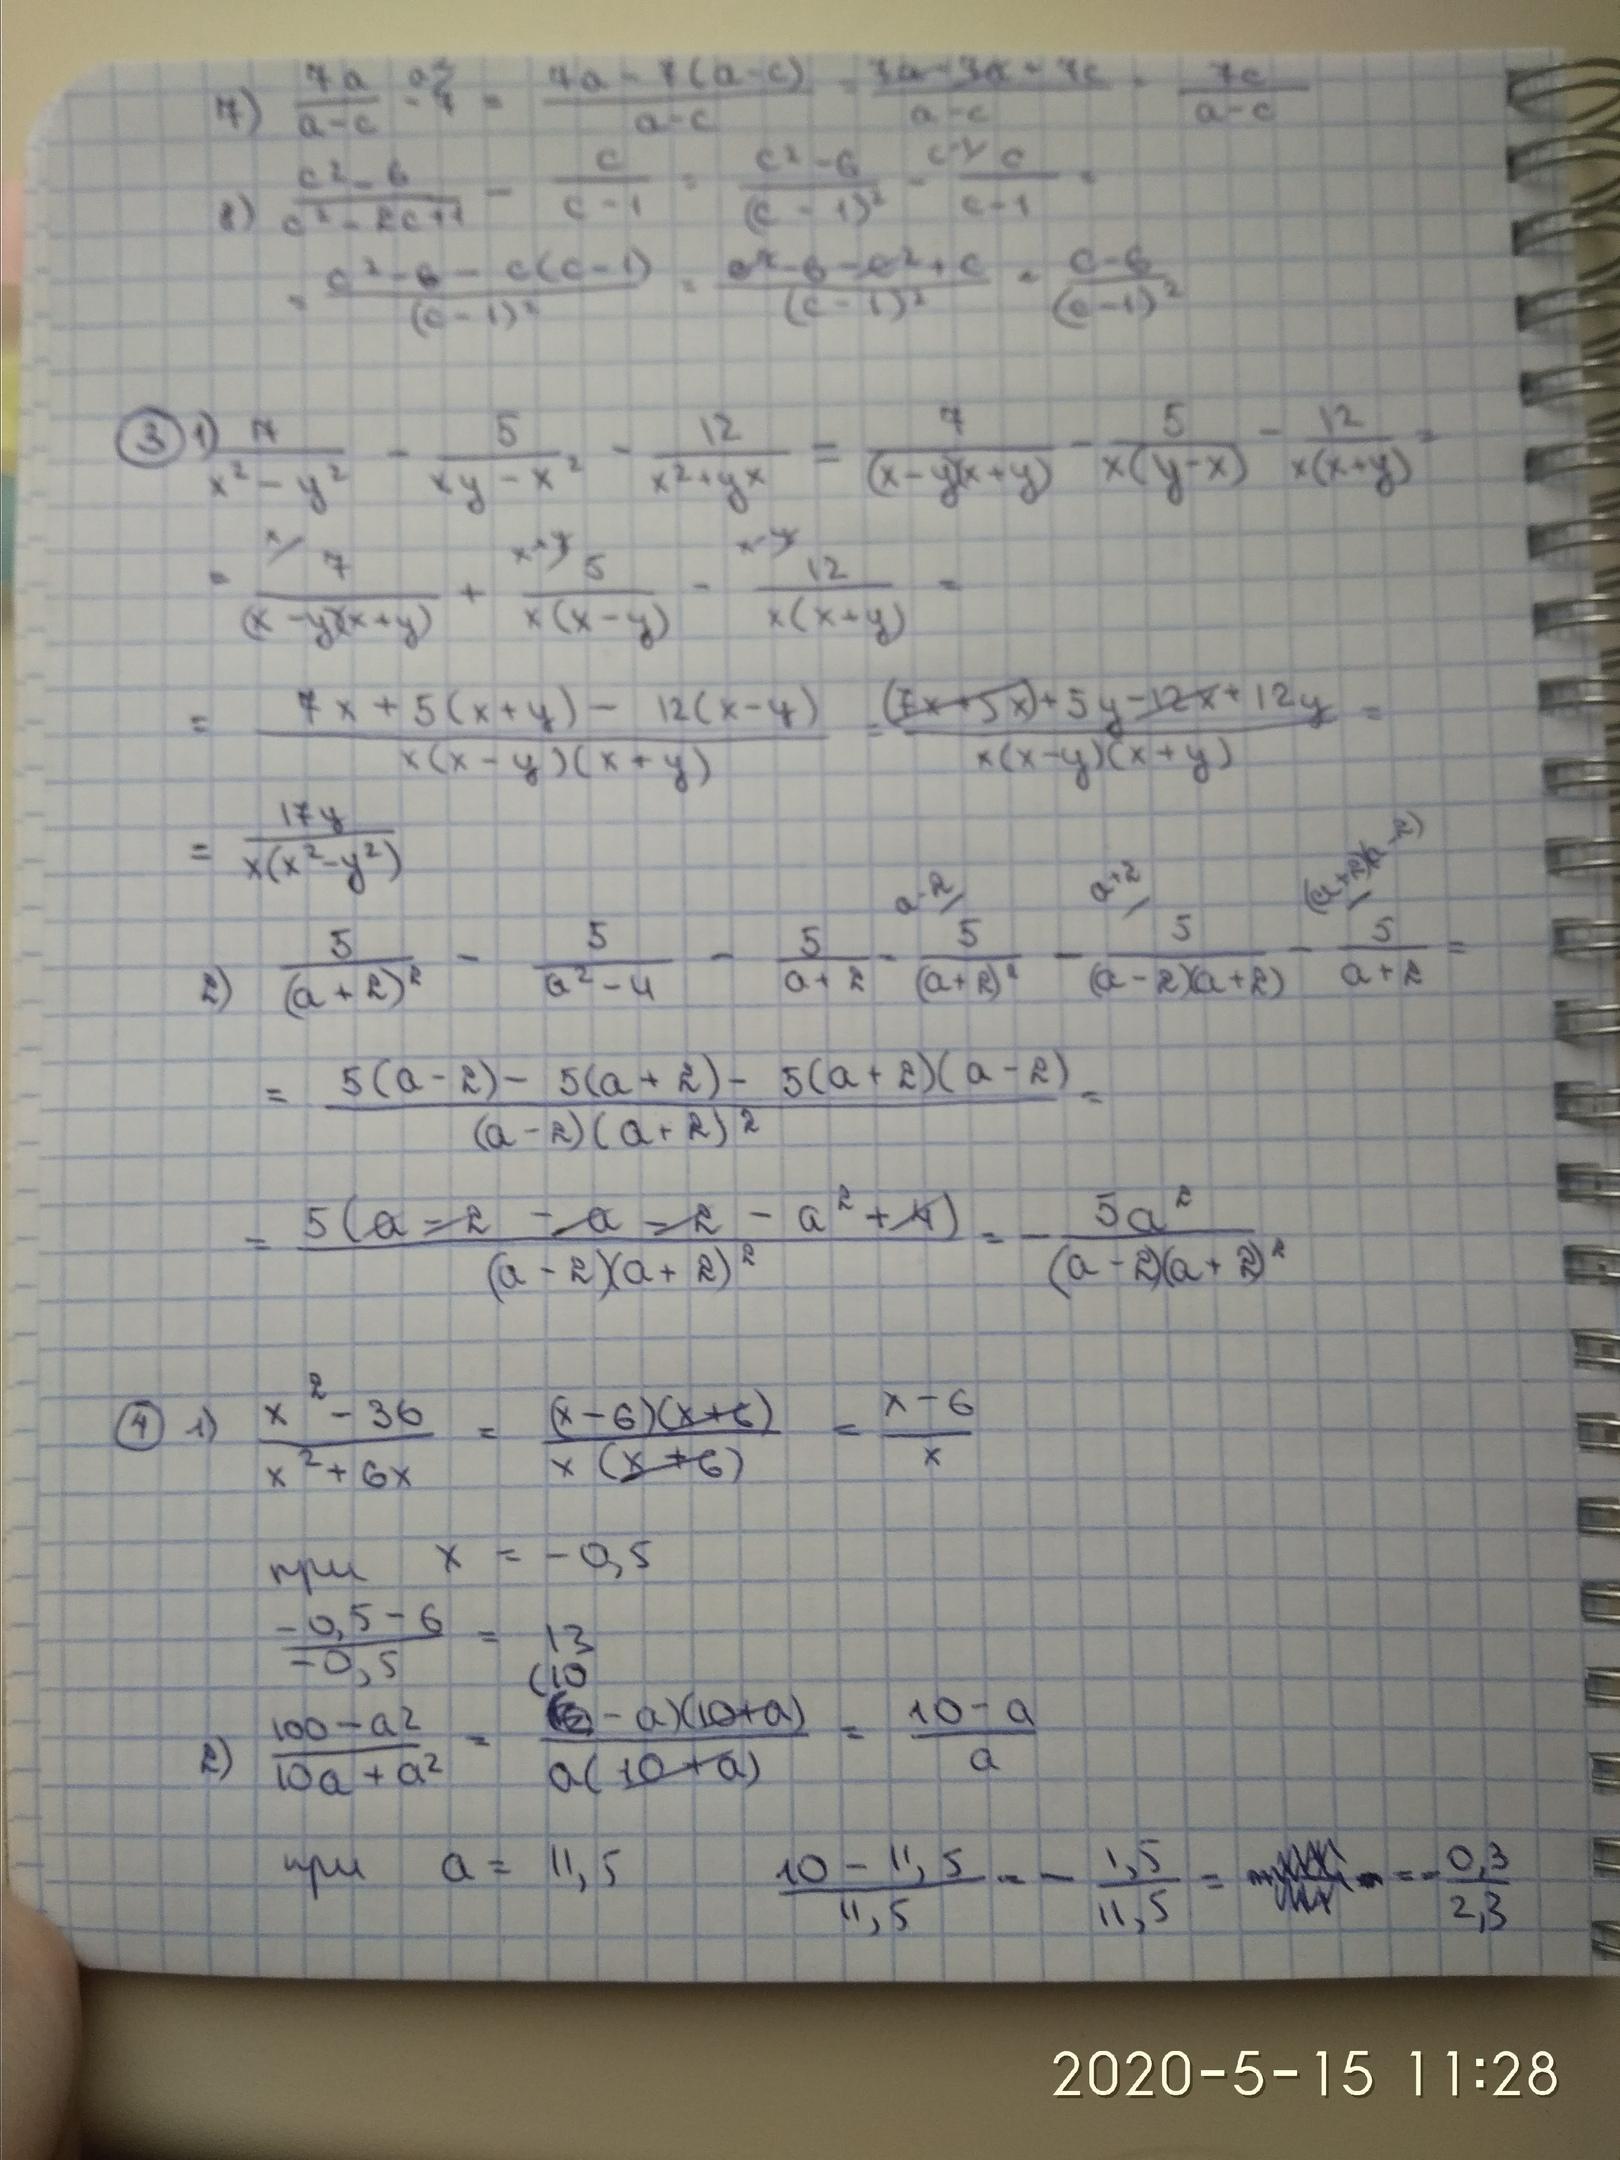 7) 7a/(a-c) - 7 = (7a-7(a-c))/(a-c) = (7a-7a+7c)/(a-c) = 7c/(a-c)
8) (c²-6)/(c²-2c+1) - c/(c-1) = (c²-6)/(c-1)² - c/(c-1) =
= (c²-6-c(c-1))/(c-1)² = (c²-6-c²+c)/(c-1)² = (c-6)/(c-1)²
③ 1) 7/(x²-y²) - 5/(xy-x²) - 12/(x²+yx) = 7/((x-y)(x+y)) - 5/(x(y-x)) - 12/(x(x+y)) =
= x/ 7/((x-y)(x+y)) + x+y/ 5/(x(x-y)) - x-y/ 12/(x(x+y)) =
= (7x+5(x+y)-12(x-y))/(x(x-y)(x+y)) = ((7x+5x)+5y-12x+12y)/(x(x-y)(x+y)) =
= 17y/(x(x²-y²))
2) 5/(a+2)² - 5/(a²-4) - 5/(a+2) = a-2/ 5/(a+2)² - a+2/ 5/((a-2)(a+2)) - (a+2)(a-2)/ 5/(a+2) =
= (5(a-2)-5(a+2)-5(a+2)(a-2))/((a-2)(a+2)²) =
= 5(a-2-a-2-a²+4)/((a-2)(a+2)²) = - 5a²/((a-2)(a+2)²)
④ 1) (x²-36)/(x²+6x) = ((x-6)(x+6))/(x(x+6)) = (x-6)/x
при x = -0,5
(-0,5-6)/(-0,5) = 13
2) (100-a²)/(10a+a²) = ((10-a)(10+a))/(a(10+a)) = (10-a)/a
при a = 11,5 (10-11,5)/11,5 = - 1,5/11,5 = = - 0,3/2,3
2020-5-15 11:28